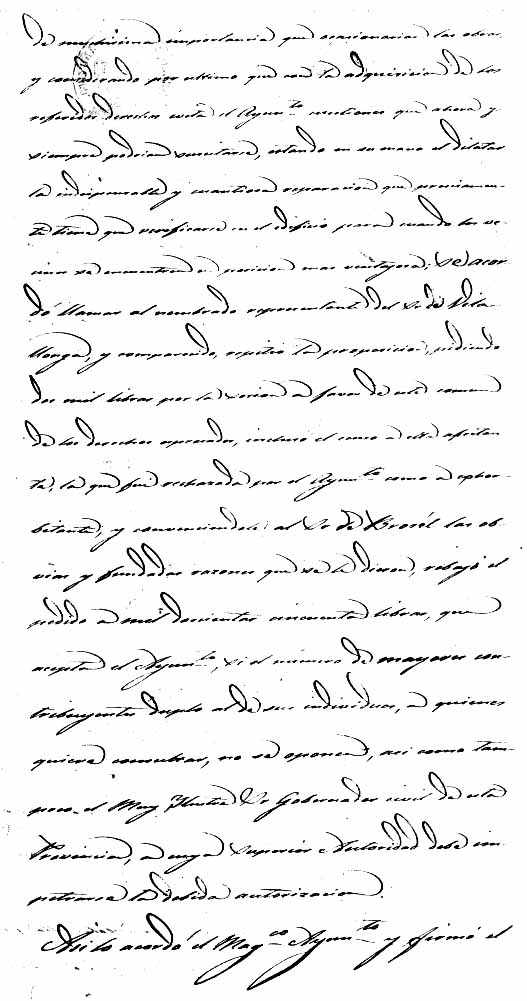 de muchisima importancia que ocasionarian las obras,
y considerando por ultimo que con la adquisicion de los
referidos derechos evita el Ayunto cuestiones que ahora y
siempre podrian suscitarse, estando en su mano el dilatar
la indispensable y cuantiosa reparacion que precisamen-
te tiene que verificarse en el edificio para cuando los ve-
cinos se encuentren en posicion mas ventajosa; Se acor
dó llamar al nombrado representante del Sr de Vila-
llonga, y comparecido, repitió la proposicion, pidiendo
dos mil libras por la cesion a favor de este comun
de los derechos espresados, incluso el censo a ella afecto
ta, la que fué rechazada por el Ayunto como a exhor-
bitante, y convenciendole al Sr de Brosél las ob-
vias y fundadas razones que se le dieron, rebajó el
pedido a mil doscientas cincuenta libras, que
acepta el Ayunto, si el número de mayores con-
tribuyentes duplo al de sus individuos, a quienes
quiere consultar, no se oponen, asi como tam-
poco el Muy Ilustre Sr Gobernador civil de esta
Provincia, a cuya Superior Autoridad debe im-
petrarse la debida autorizacion.
Asi lo acordó el Magco Ayunto y firmó el